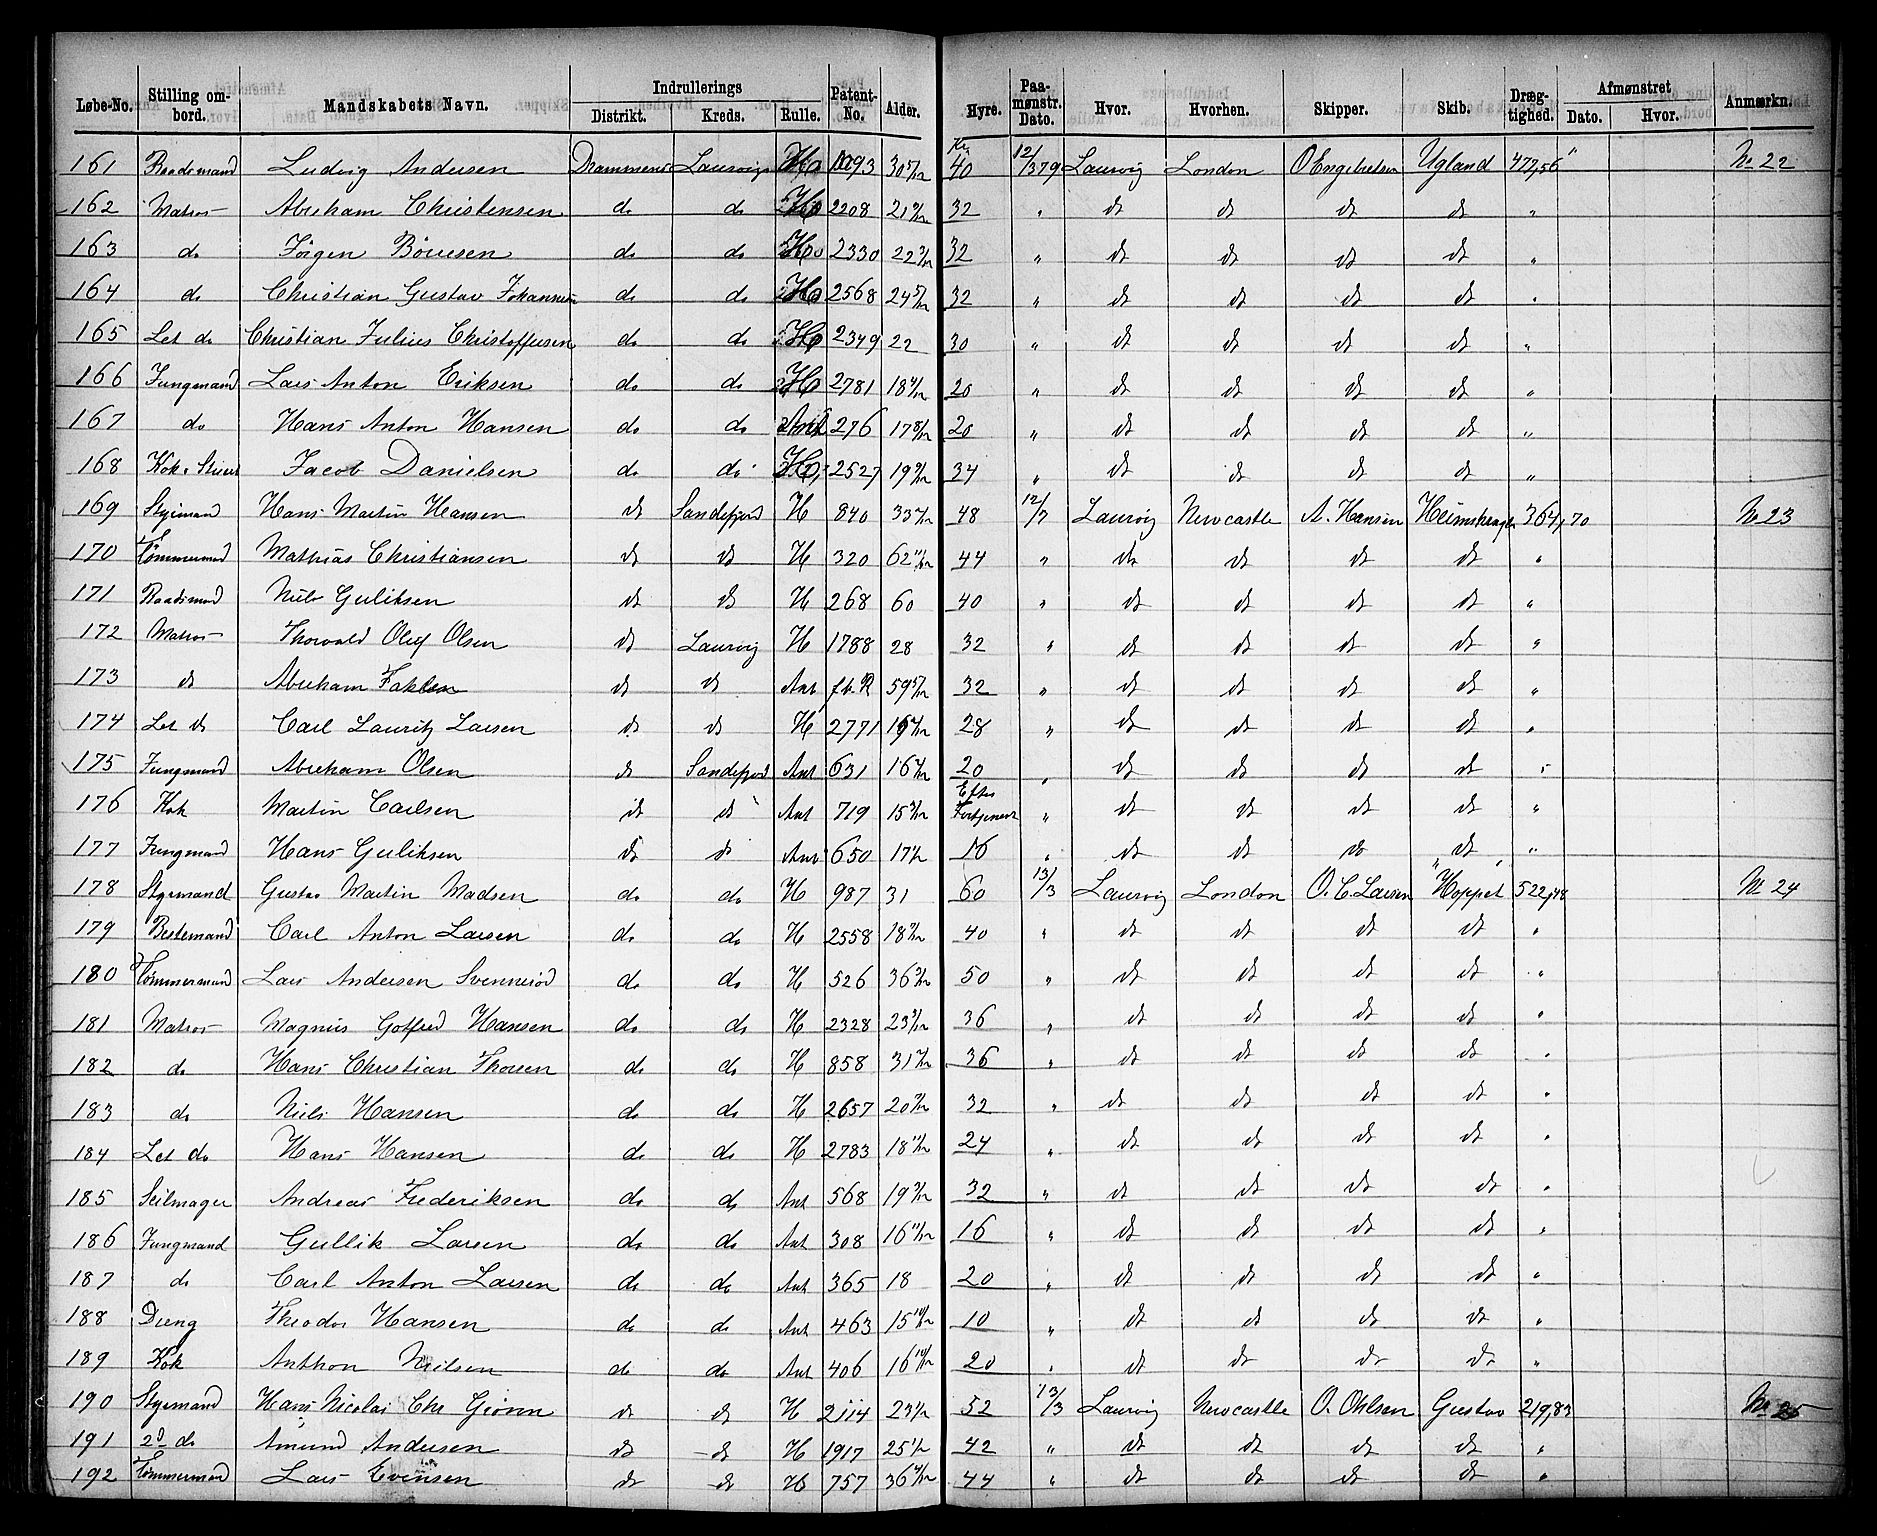 Løbe-No. Stilling ombord. Mandskabets Navn. Indrullerings Distrikt. Kreds. Rulle. Patent-No. Alder. Hyre. Paamønstr. Dato. Hvor. Hvorhen. Skipper. Skib. Drægtighed. Afmønstret Dato. Hvor. Anmærkn.
161 Baadsmand Ludvig Andersen Drammens Laurvigs H 1093 30 5/12 Kr 40 12/3 79 Laurvig London O Engebretsen Ugland 472,56 No 22
162 Matros Abraham Christensen do do H 2208 32 " dt dt dt dt "
163 do Jørgen Børresen do do H 2330 32 " dt dt dt dt "
164 do Christian Gustav Johannesen do do H 2568 24 5/12 32 " dt dt dt dt "
165 Let do Christian Julius Christoffersen do do H 2349 22 30 " dt dt dt dt "
166 Jungmand Lars Anton Eriksen do do H 2781 20 " dt dt dt dt "
167 do Hans Anton Hansen do do Ant 276 17 8/12 20 " dt dt dt dt "
168 Jacob Danielsen do do H 2527 34 " dt dt dt dt "
169 Styrmand Hans Martin Hansen dt Sandefjord H 840 48 12/3 Laurvig Newcastle A. Hansen 364,70 No 23
170 Tømmermand Mathias Christiansen dt dt H 320 62 11/12 44 " dt dt dt dt "
171 Baadsmand Nils Guliksen dt dt H 268 60 40 " dt dt dt dt "
172 Matros Thorvald Oluf Olsen dt Laurvig H 1788 28 32 " dt dt dt dt "
173 dt Abraham dt dt Ant 59 5/12 32 " dt dt dt dt "
174 Let dt Carl Lauritz Larsen dt dt H 2771 28 " dt dt dt dt "
175 Jungmand Abraham Olsen dt Sandefjord Ant 631 20 " dt dt dt dt "
176 Kok Martin Carlsen dt dt Ant 719 Efter Fortjeneste " dt dt dt dt "
177 Jungmand Hans Guliksen dt dt Ant 650 16 " dt dt do dt "
178 Styrmand Gustav Martin Madsen do do H 987 31 60 13/3 Laurvig London O. C. Larsen "Hoppet" No 24
179 Bestemand Carl Anton Larsen do do H 2558 40 " dt dt dt dt "
180 Tømmermand Lars Andersen do do H 526 50 " dt dt dt dt "
181 Matros Magnus Gotfred Hansen do do H 2328 36 " dt dt dt dt "
182 do Hans Christian Thorsen do do H 858 36 " dt dt dt dt "
183 do Niels Hansen do do H 2657 32 " dt dt dt dt "
184 Let do Hans Hansen do do H 2783 18 11/12 24 " dt dt dt dt "
185 Seilmager Andreas Frederiksen do do Ant 568 32 " dt dt dt dt "
186 Jungmand Gullik Larsen do do Ant 308 16 11/12 16 " dt dt dt dt "
187 do Carl Anton Larsen do do Ant 365 18 20 " dt dt dt dt "
188 Dreng Theodor Hansen do do Ant 463 15 10/12 10 " dt dt dt dt "
189 Kok Anthon Nielsen do do Ant 406 16 10/12 20 " dt dt do do "
190 Styrmand Hans Nicolai Chr dt dt H 2114 52 13/3 Laurvig Newcastle O. Ohlsen Gustav 219,83 No 25
191 2d do Amund Andersen dt dt H 1917 42 " dt dt dt dt "
192 Tømmermand Lars Evensen dt dt H 757 44 " dt dt dt dt "